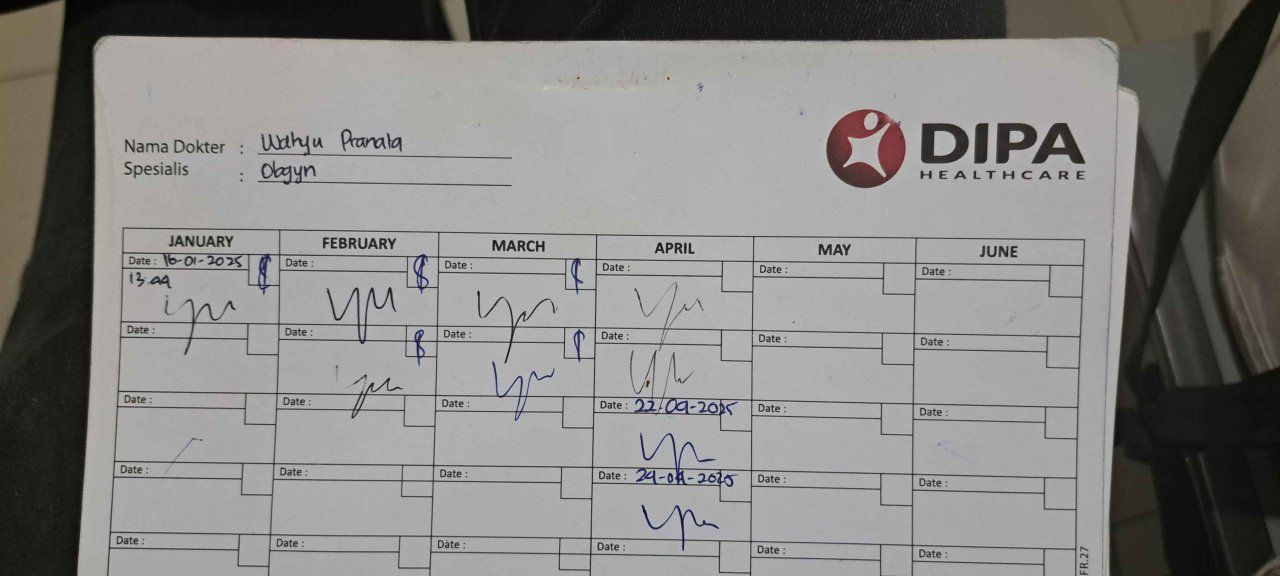 Nama Dokter : Wahyu Pranata
Spesialis : Obgyn
DIPA
HEALTHCARE
JANUARY FEBRUARY MARCH APRIL MAY JUNE
Date : 16-01-2025 Date : Date : Date : Date : Date :
Date : Date : Date : Date : Date : Date :
Date : Date : Date : Date : 22-09-2025 Date : Date :
Date : Date : Date : Date : 24-04-2025 Date : Date :
Date : Date : Date : Date : Date : Date :
FR.27